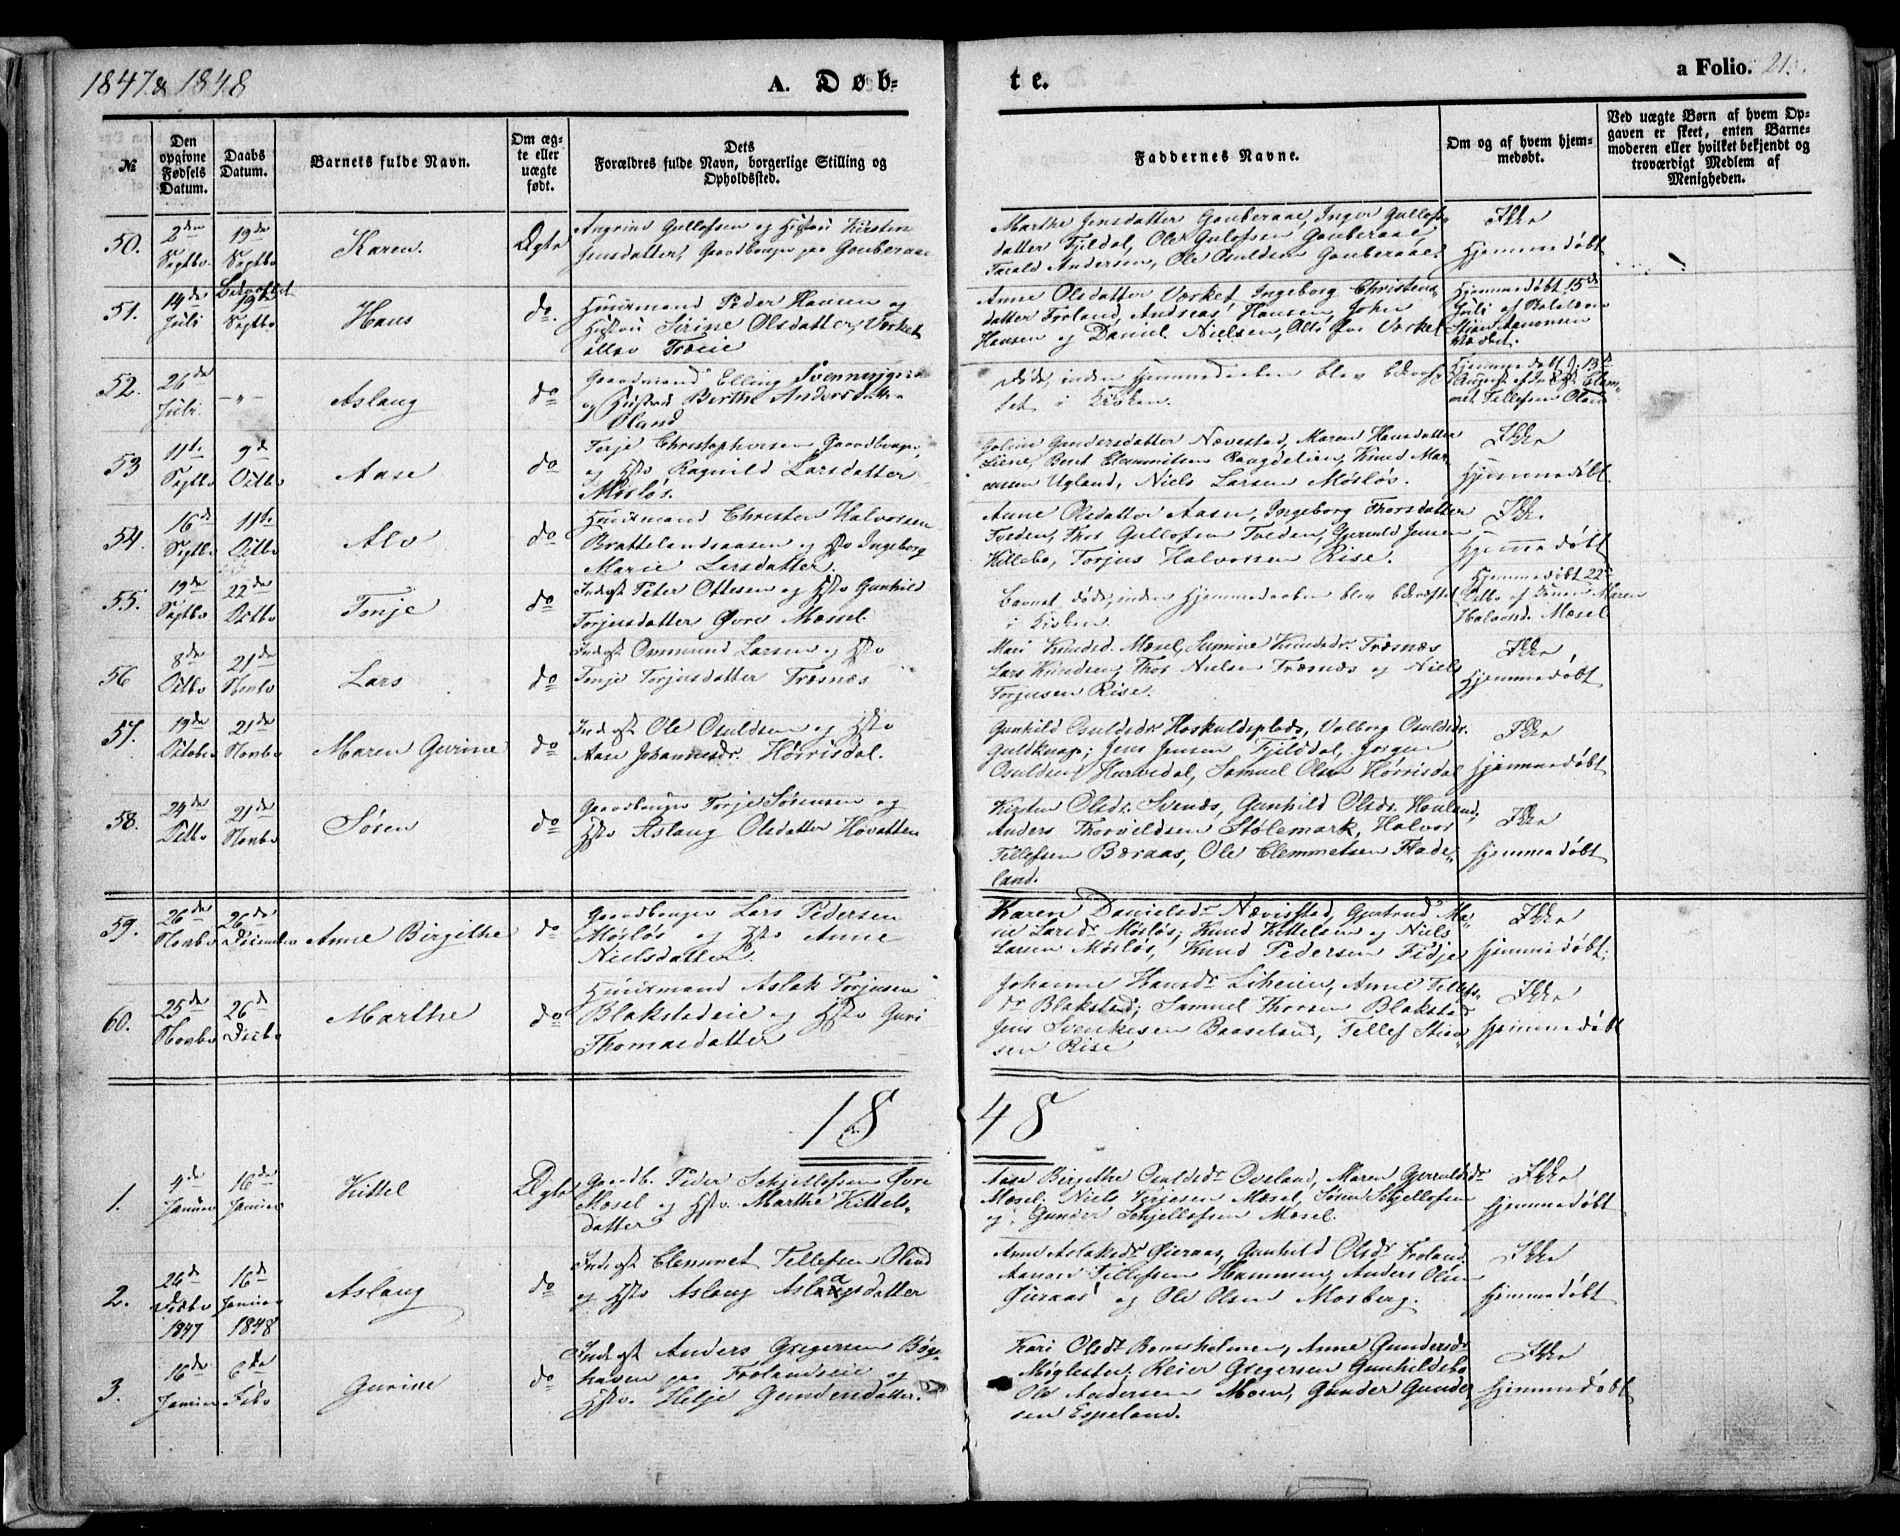 1847 & 1848
A. Døb-
te.
a Folio. 21.
№
Den opgivne Fødsels Datum.
Daabs Datum.
Barnets fulde Navn.
Om ægte eller uægte født.
Dets Forældres fulde Navn, borgerlige Stilling og Opholdssted.
Faddernes Navne.
Om og af hvem hjemmedøbt.
Ved uægte Børn af hvem Opgaven er skeet, enten Barnemoderen eller hvilket bekjendt og troværdigt Medlem af Menigheden.
50.
2den Septbr
19de Septbr
Karen.
Ægte
Gullofsen og Hustru Kirsten
Jensdatter, Gaardbruger paa Gouberaae
Marthe Jensdatter Gouberaae, Inger Gullofs-
datter Fjeldal, Ole Gulofsen Gouberaae
Andersen, Ole Osuldsen Gouberaae.
Ikke
Hjemmedøbt
51.
14de Juli
Bekræftet 19de Septbr
Hans
do.
Huusmand Peder Hansen og
Hustru Sirine Olsdatter, Værket
eller Træeie
Anne Olsdatter Værket, Ingeborg Christens-
datter Froland, Andreas Hansen, John
Hansen og Daniel Nielsen, Alle fra Værket
Hjemmedøbt 15de
Juli af
Stian Aanonsen
Værket.
52.
26de Juli
-"-
Aslaug
do
Gaardmand Elling
og Hustru Berthe Andersdatter
Øland
Døde, inden Hjemmedaaben blev bekræf-
tet i Kirken.
Hjemmedøbt d. 13de
August af
Tellefsen Øland
53
11te Septbr
9de Octbr
Aase
do
Terje Christophersen Gaardbruger,
og Hstr Ragnild Larsdatter
Mørløs.
Gundersdatter Nævestad, Maren Hansdatter
Liene, Bent Clemmetsen Raugdelien, Knud Mar-
cussen Ugland, Niels Larsen Mørløs.
Ikke
Hjemmedøbt.
54.
16de Septbr
11te Octbr
Alv
do
Huusmand Christen Halvorsen
Brattelandsaasen og Hstr Ingeborg
Marie Larsdatter.
Anne Olsdatter Aasen, Ingeborg Thorsdatter
Tveden, Thor Gullofsen Tveden, Gjeruld Jensen
Hillebo, Torjus Halvorsen Rise.
Ikke
Hjemmedøbt
55.
19de Septbr
22de Octbr
Terje
do
Inderst Peter Ottesen og Hstr Gunhild
Torjusdatter Øvre Mæssel
Barnet døde, inden Hjemmedaaben blev bekræftet
i Kirken
Hjemmedøbt 22de
Octbr af Maren
Halvorsd. Mæsel
56
8de Octbr
21de Novbr
Lars
do
Inderst Ommund Larsen og Hstr
Terje Torjusdatter Træsnæs
Mari Knudsd. Mæsel, Knudsdr. Træsnæs
Lars Knudsen, Thor Nielsen Træsnæs og Niels
Torjusen Rise.
Ikke
Hjemmedøbt
57.
19de October
21de Novbr
Maren Gurine
do
Inderst Ole Osuldsen og Hstr
Aase Johannesdr. Hørrisdal.
Gunhild Osuldsdr. Hoskuldsplads, Valborg Osuldsdr.
Guldknap; Jens Jensen Fjelddal, Jørgen
Osuldsen Hurvedal, Samuel Olsen Hørrisdal
Ikke
Hjemmedøbt
58.
24de Octbr
21de Novbr
Søren
do
Gaardbruger Torje Sørensen og
Hstr Aslaug Olsdatter Høvatten
Kirsten Olsdr. Svenæs, Gunhild Olsdr. Houland,
Anders Thorvildsen Stølemark, Halvor
Tellefsen Bæraas, Ole Clemmetsen Flade-
land.
Ikke
Hjemmedøbt
59.
26de Novbr
26de December
Anne Birgithe
do
Gaardbruger Lars Pedersen
Mørløs og Hstr Anne
Nielsdatter.
Karen Danielsdr. Nævisstad, Gjertrud Ma-
rie Larsdr. Mørløs; Knud Kittelsen og Niels
Larsen Mørløs, Knud Pedersen Fidje
Ikke
Hjemmedøbt.
60.
25de Novbr
26de Decbr
Marthe
do
Huusmand Aslak Torjusen
Blakstadeie og Hstr Guri
Thomasdatter
Johanne Hansdr. Liheien, Anne Tellefs-
dr. Blakstad; Samuel Thorsen Blakstad
Jens Svenkesen Baaseland, Tellef Stian-
sen Rise
Ikke
Hjemmedøbt
1848
1.
4de Januar
16de Januar
Kittel
Ægte
Gaardb. Peder Schjellefsen Øvre
Mosel og Hstr. Marthe Kittels-
datter
Aase Birgithe Osuldsdr. Oveland, Maren Gjeruldsdr.
Mosel. Niels Terjesen Mæsel, Schjellofsen
og Gunder Schjellofsen Mosel.
Ikke
Hjemmedøbt
2.
26de Decbr 1847
16de Januar 1848
Aslaug
do
Inderst Clemmet Tellefsen Øland
og Hstr Aslaug Aslaagsdatter
Anne Aslaksdr. Gieraas, Gunhild Olsdr. Froland.
Aanon Tellefsen Hammen, Anders Olsen
Gieraas og Ole Olsen Mosberg.
Ikke
Hjemmedøbt
3.
16de Januar
6te Febr
Gurine
do
Inderst Anders Gregersen Bøge-
haven paa Frolandseie og
Hstr. Helje Gundersdatter.
Kari Olsdr. Bomsholmen, Anne Gundersdr.
Møglestu; Reier Gregersen Gunhildsbo
Ole Andersen Moen, Gunder Gunder-
sen Espeland.
Ikke
Hjemmedøbt